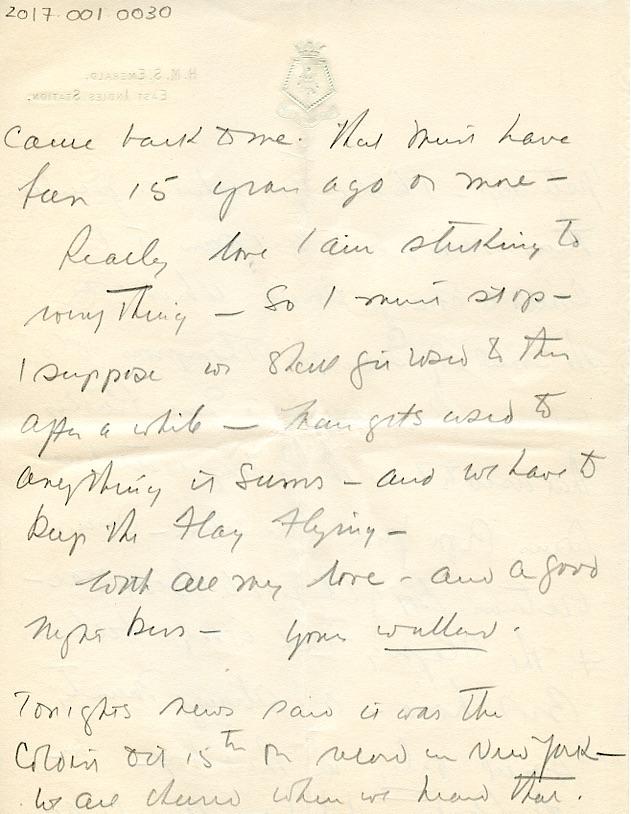 2017.001.0030
H.M.S. EMERALD.
EAST INDIES STATION.
Came back to me. That must have
been 15 years ago or more –
Really love I am sticking to
everything – So I must stop –
I suppose we shall get used to this
after a while – Man gets used to
anything it seems – and we have to
keep the Flag Flying –
With all my love – and a good
night kiss – Your
Tonights news said it was the
coldest Oct 15th on record in New York –
We all cheered when we heard that.